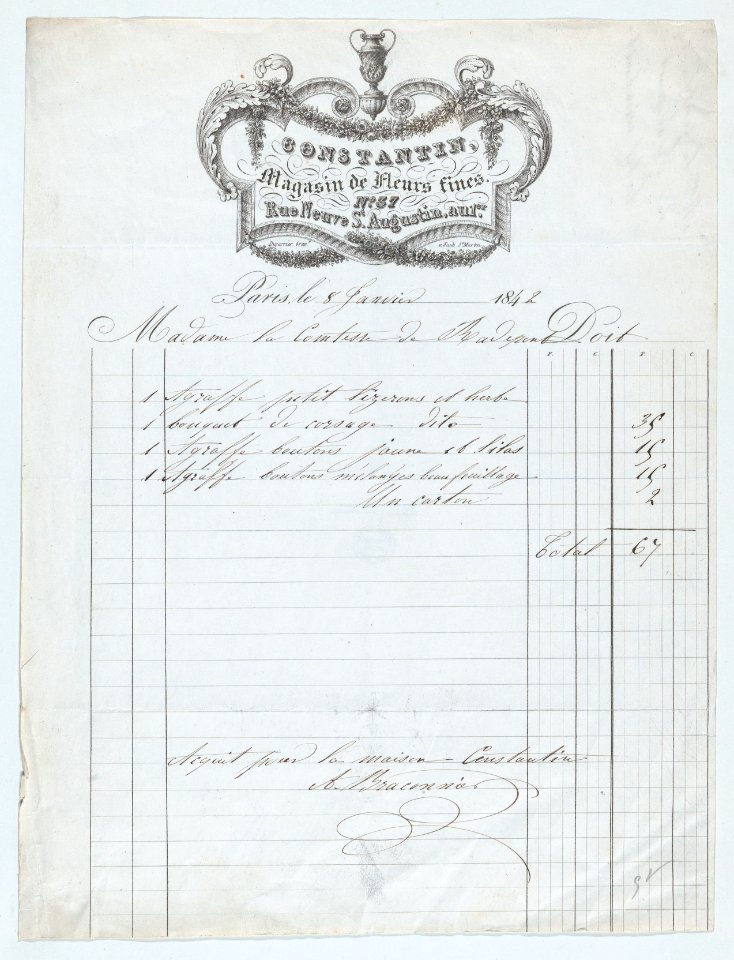 CONSTANTIN,
Magasin de Fleurs fines.
N° 37
Rue Neuve St. Augustin, au 1er.
Paris, le 8 Janvier 1842
Madame la Comtesse de Doit
F. C. F. C.
1 Agraffe petit lizerons et herbe
1 bouquet de corsage dito 35
1 Agraffe boutons jaune et lilas 15
1 Agraffe boutons mélanges beau feuillage 15
Un carton 2
Total 67
Acquit pour la maison Constantin
A. Braconnier